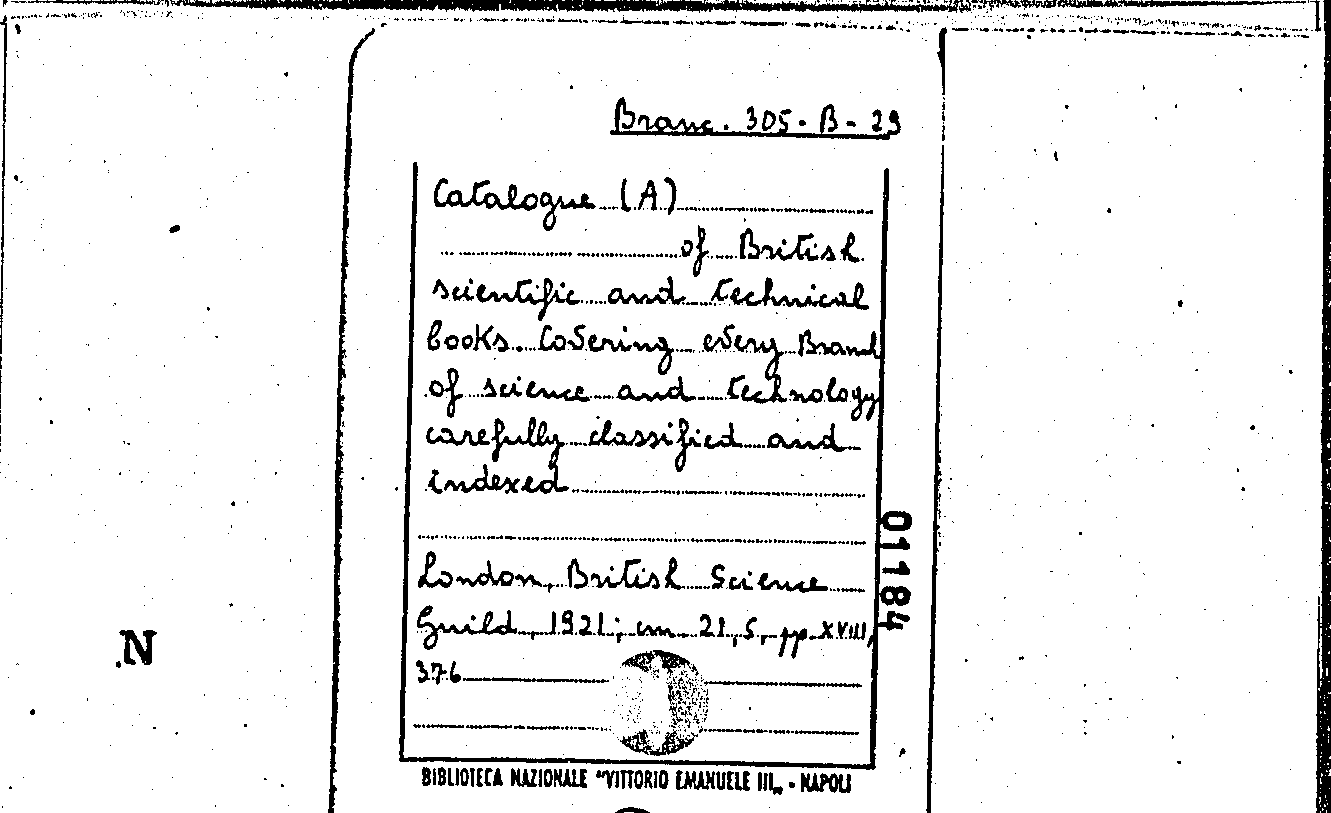 Branc. 305-B-29
Catalogue (A)
of British
scientific and technical
books. Covering every Branch
of science and technology
carefully classified and
indexed
London, British Science
Guild, 1921; cm. 21,5, pp. XVIII,
376
01184
N
BIBLIOTECA NAZIONALE "VITTORIO EMANUELE III„ - NAPOLI